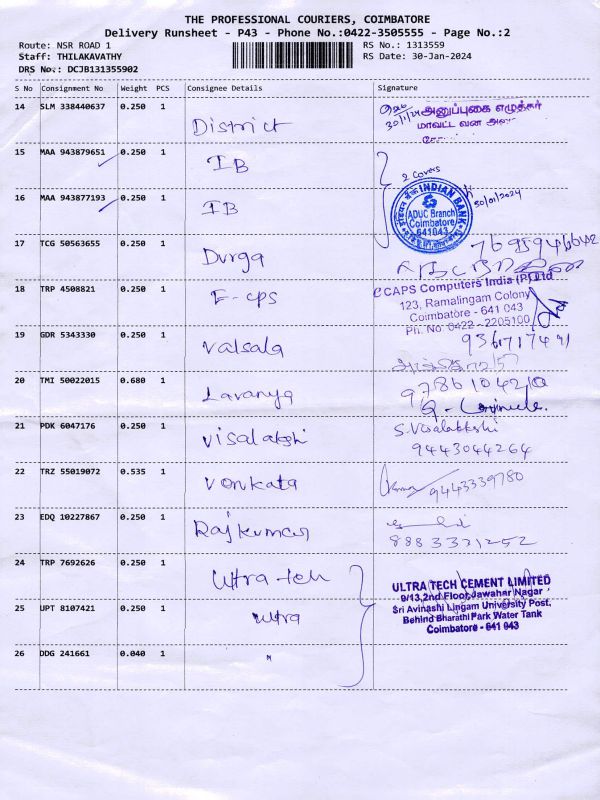 THE PROFESSIONAL COURIERS, COIMBATORE
Delivery Runsheet - P43 - Phone No.:0422-3505555 - Page No.:2
Route: NSR ROAD 1
RS No.: 1313559
Staff: THILAKAVATHY
RS Date: 30-Jan-2024
DRS No.: DCJB131355902
S No Consignment No Weight PCS Consignee Details Signature
14 SLM 338440637 0.250 1 District
30/1/24 அனுப்புகை எழுத்தர்
மாவட்ட வன
15 MAA 943879651 0.250 1 IB
2 Covers
30/01/2024
INDIAN BANK
ADUC Branch
Coimbatore
641043
16 MAA 943877193 0.250 1 IB
17 TCG 50563655 0.250 1 Durga
18 TRP 4508821 0.250 1 E-cps
eCAPS Computers India (P) Ltd
123, Ramalingam Colony
Coimbatore - 641 043
Ph. No: 0422 - 2205100
19 GDR 5343330 0.250 1 Valsala
9361717491
20 TMI 50022015 0.680 1 Lavanya
9786104210
21 PDK 6047176 0.250 1 Visalakshi
S. Visalakkshi
9443044264
22 TRZ 55019072 0.535 1 Venkata
9443339780
23 EDQ 10227867 0.250 1 Rajkumar
8883331252
24 TRP 7692626 0.250 1 Ultra-tech
ULTRA TECH CEMENT LIMITED
9/13,2nd Floor,Jawahar Nagar
Sri Avinashi Lingam University Post,
Behind Bharathi Park Water Tank
Coimbatore - 641 043
25 UPT 8107421 0.250 1 Ultra
26 DDG 241661 0.040 1 "